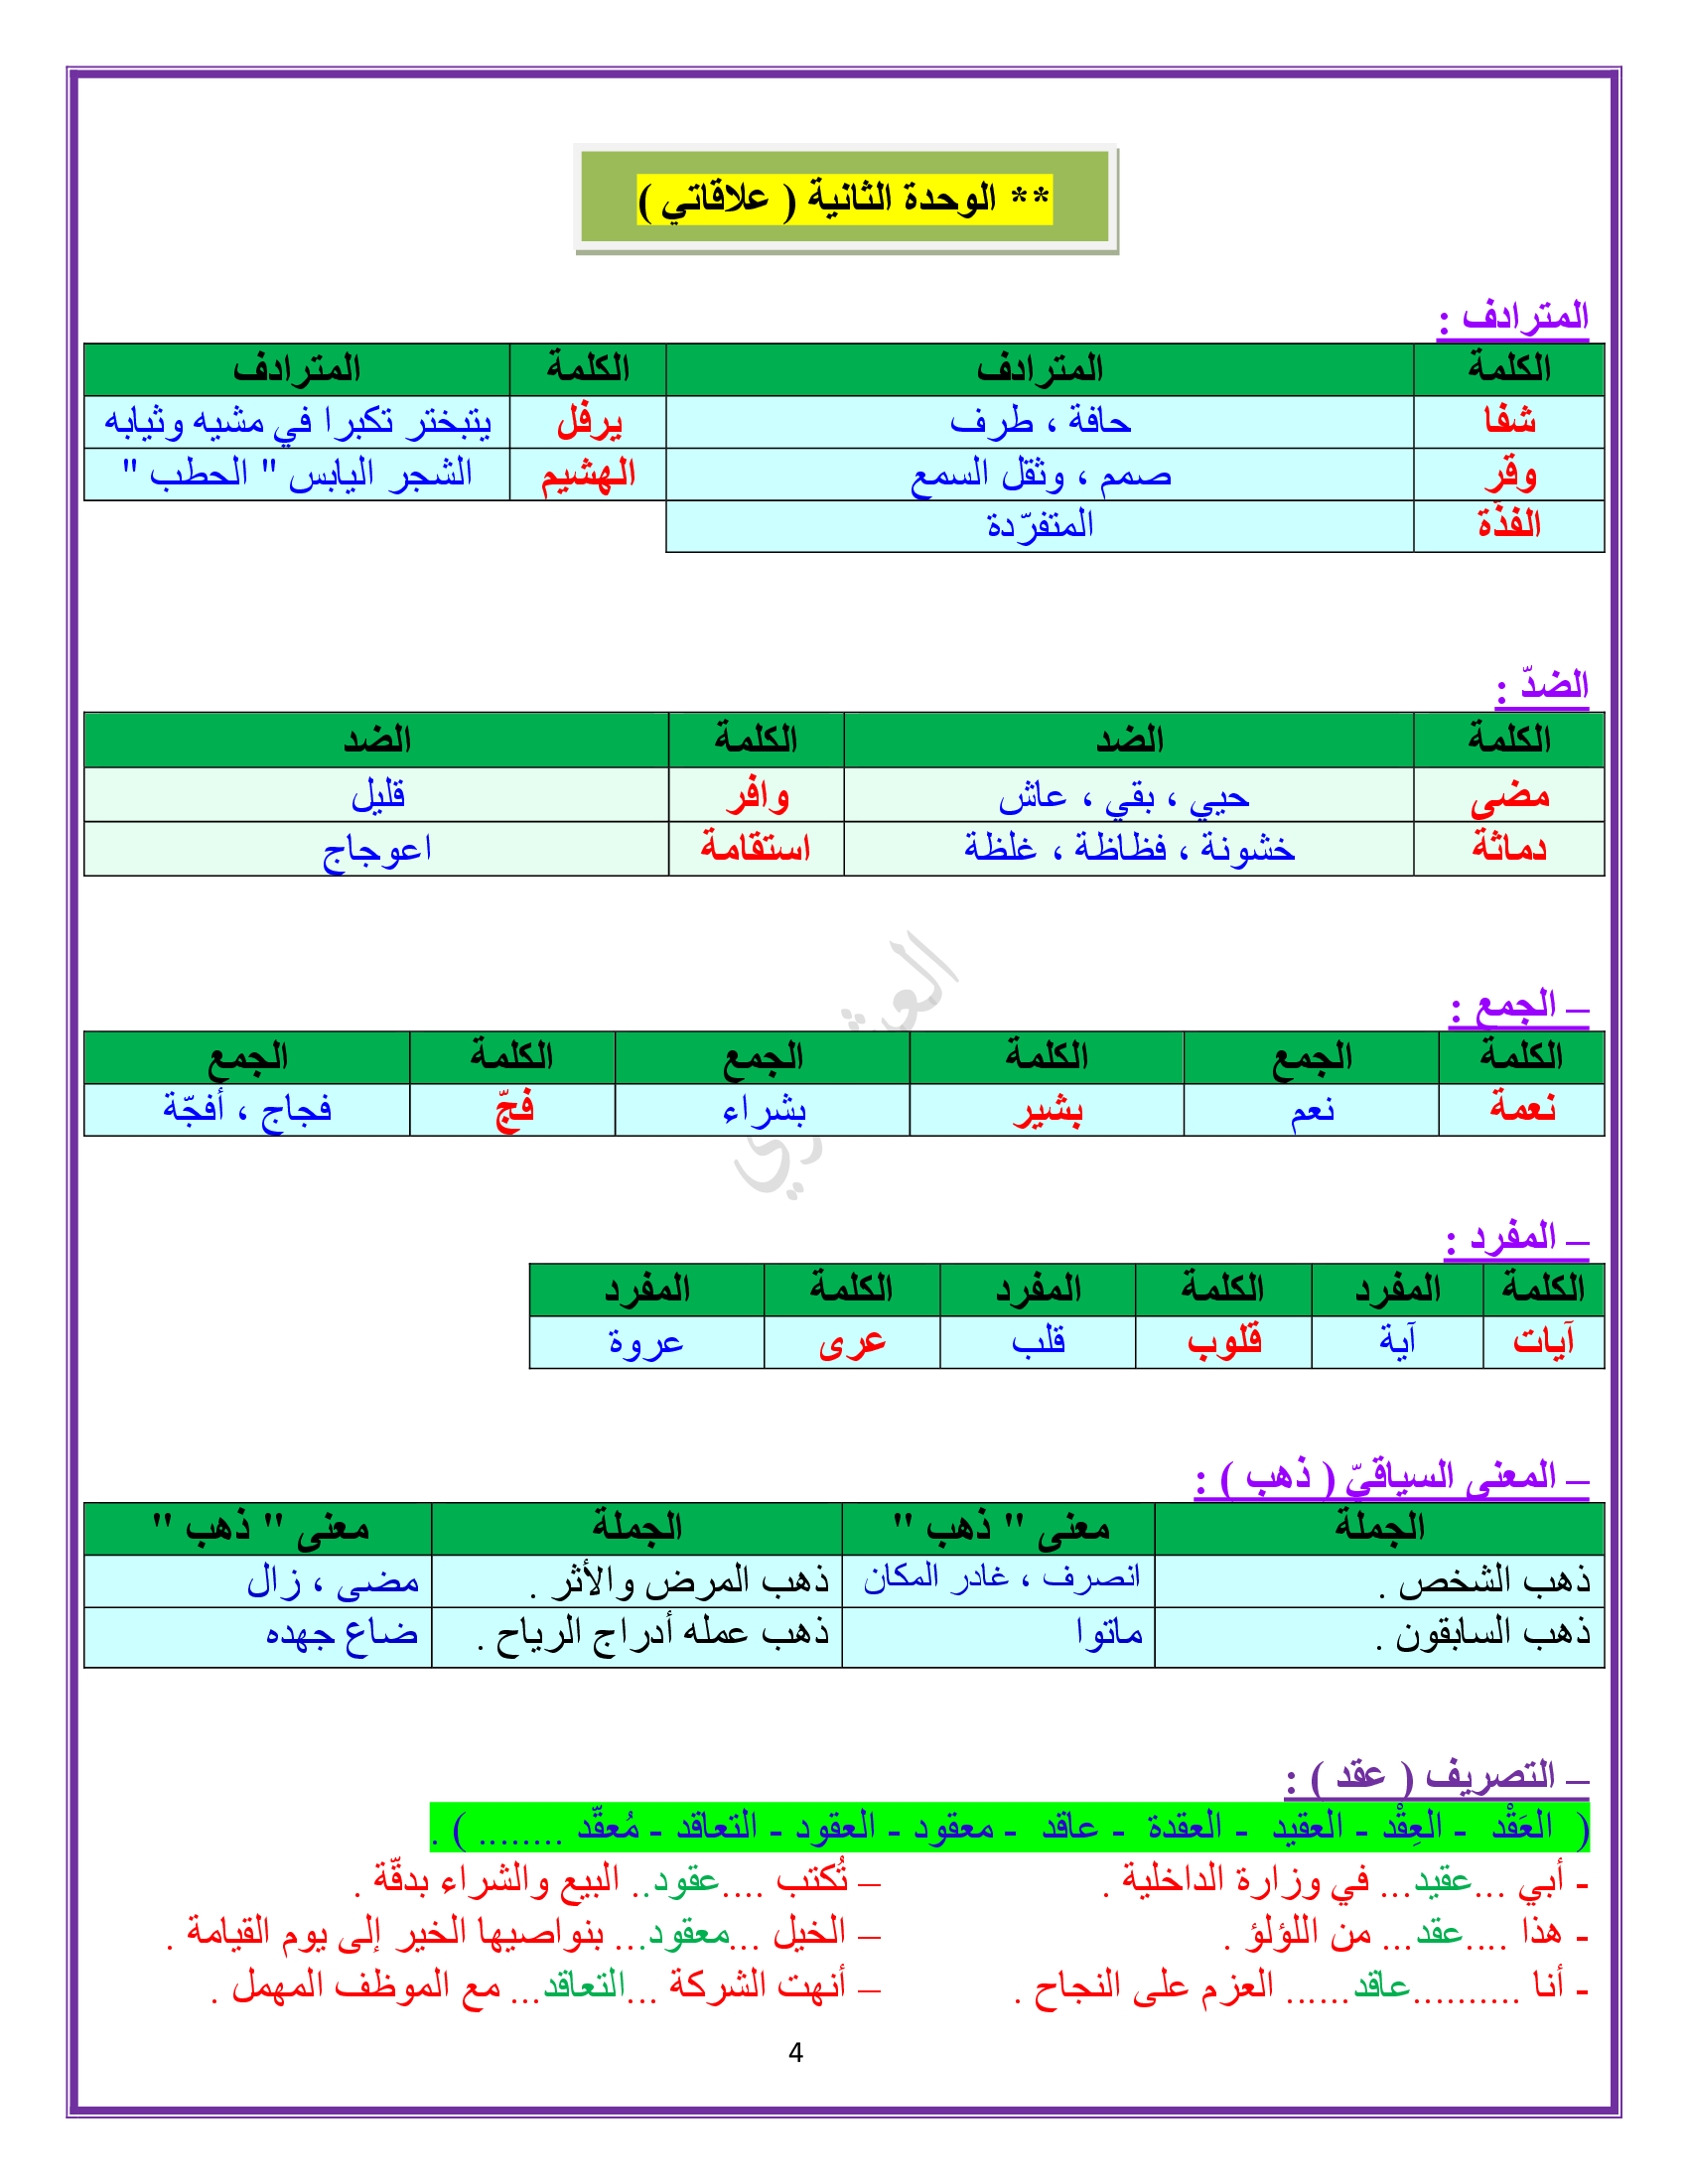 ** الوحدة الثانية ( علاقاتي )
المترادف :
الكلمة المترادف الكلمة المترادف
شفا حافة ، طرف يرفل يتبختر تكبرا في مشيه وثيابه
وقر صمم ، وثقل السمع الهشيم الشجر اليابس " الحطب "
الفذّة المتفرّدة
الضدّ :
الكلمة الضد الكلمة الضد
مضى حيي ، بقي ، عاش وافر قليل
دماثة خشونة ، فظاظة ، غلظة استقامة اعوجاج
– الجمع :
الكلمة الجمع الكلمة الجمع الكلمة الجمع
نعمة نعم بشير بشراء فجّ فجاج ، أفجّة
– المفرد :
الكلمة المفرد الكلمة المفرد الكلمة المفرد
آيات آية قلوب قلب عرى عروة
– المعنى السياقيّ ( ذهب ) :
الجملة معنى " ذهب " الجملة معنى " ذهب "
ذهب الشخص . انصرف ، غادر المكان ذهب المرض والأثر . مضى ، زال
ذهب السابقون . ماتوا ذهب عمله أدراج الرياح . ضاع جهده
– التصريف ( عقد ) :
( العَقْد - العِقْد - العقيد - العقدة - عاقد - معقود - العقود - التعاقد - مُعقّد ........ ) .
- أبي ...عقيد... في وزارة الداخلية . – تُكتب ....عقود.. البيع والشراء بدقّة .
- هذا ....عقد... من اللؤلؤ . – الخيل ...معقود... بنواصيها الخير إلى يوم القيامة .
- أنا ..........عاقد...... العزم على النجاح . – أنهت الشركة ...التعاقد... مع الموظف المهمل .
4